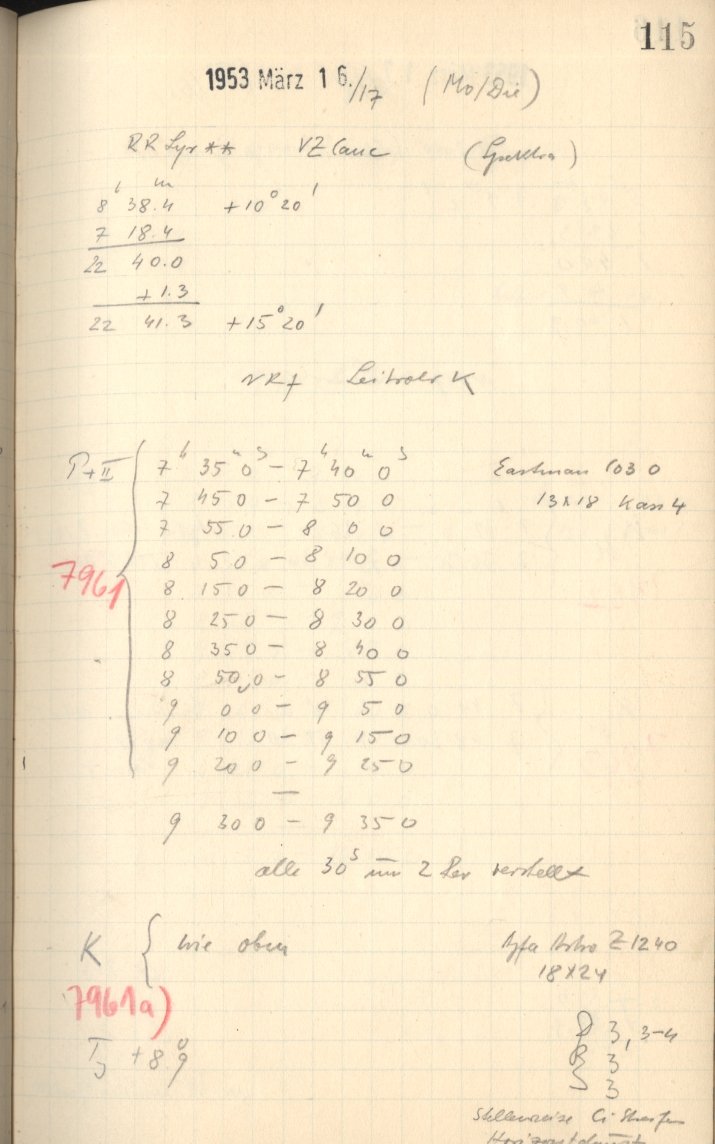 115
1953 März 16./17 (Mo/Die)
RR Lyr ** VZ Canc (Spektra)
8h 38.4m +10° 20'
7 18.4
22 40.0
+1.3
22 41.3 +15° 20'
Leitrohr K
7h 35m 0s - 7h 40m 0s Eastman 103 0
7 45 0 - 7 50 0 13x18 Kass 4
7 55 0 - 8 0 0
7961
8 5 0 - 8 10 0
8 15 0 - 8 20 0
8 25 0 - 8 30 0
8 35 0 - 8 40 0
8 50 0 - 8 55 0
9 0 0 - 9 5 0
9 10 0 - 9 15 0
9 20 0 - 9 25 0
—
9 30 0 - 9 35 0
alle 30s um 2 Rev verstellt
K { wie oben Agfa Astro Z 1240
18x24
7961a)
D 3, 3-4
T +8.9° R 3
S 3
stellenweise Ci Streifen
Horizontdunst